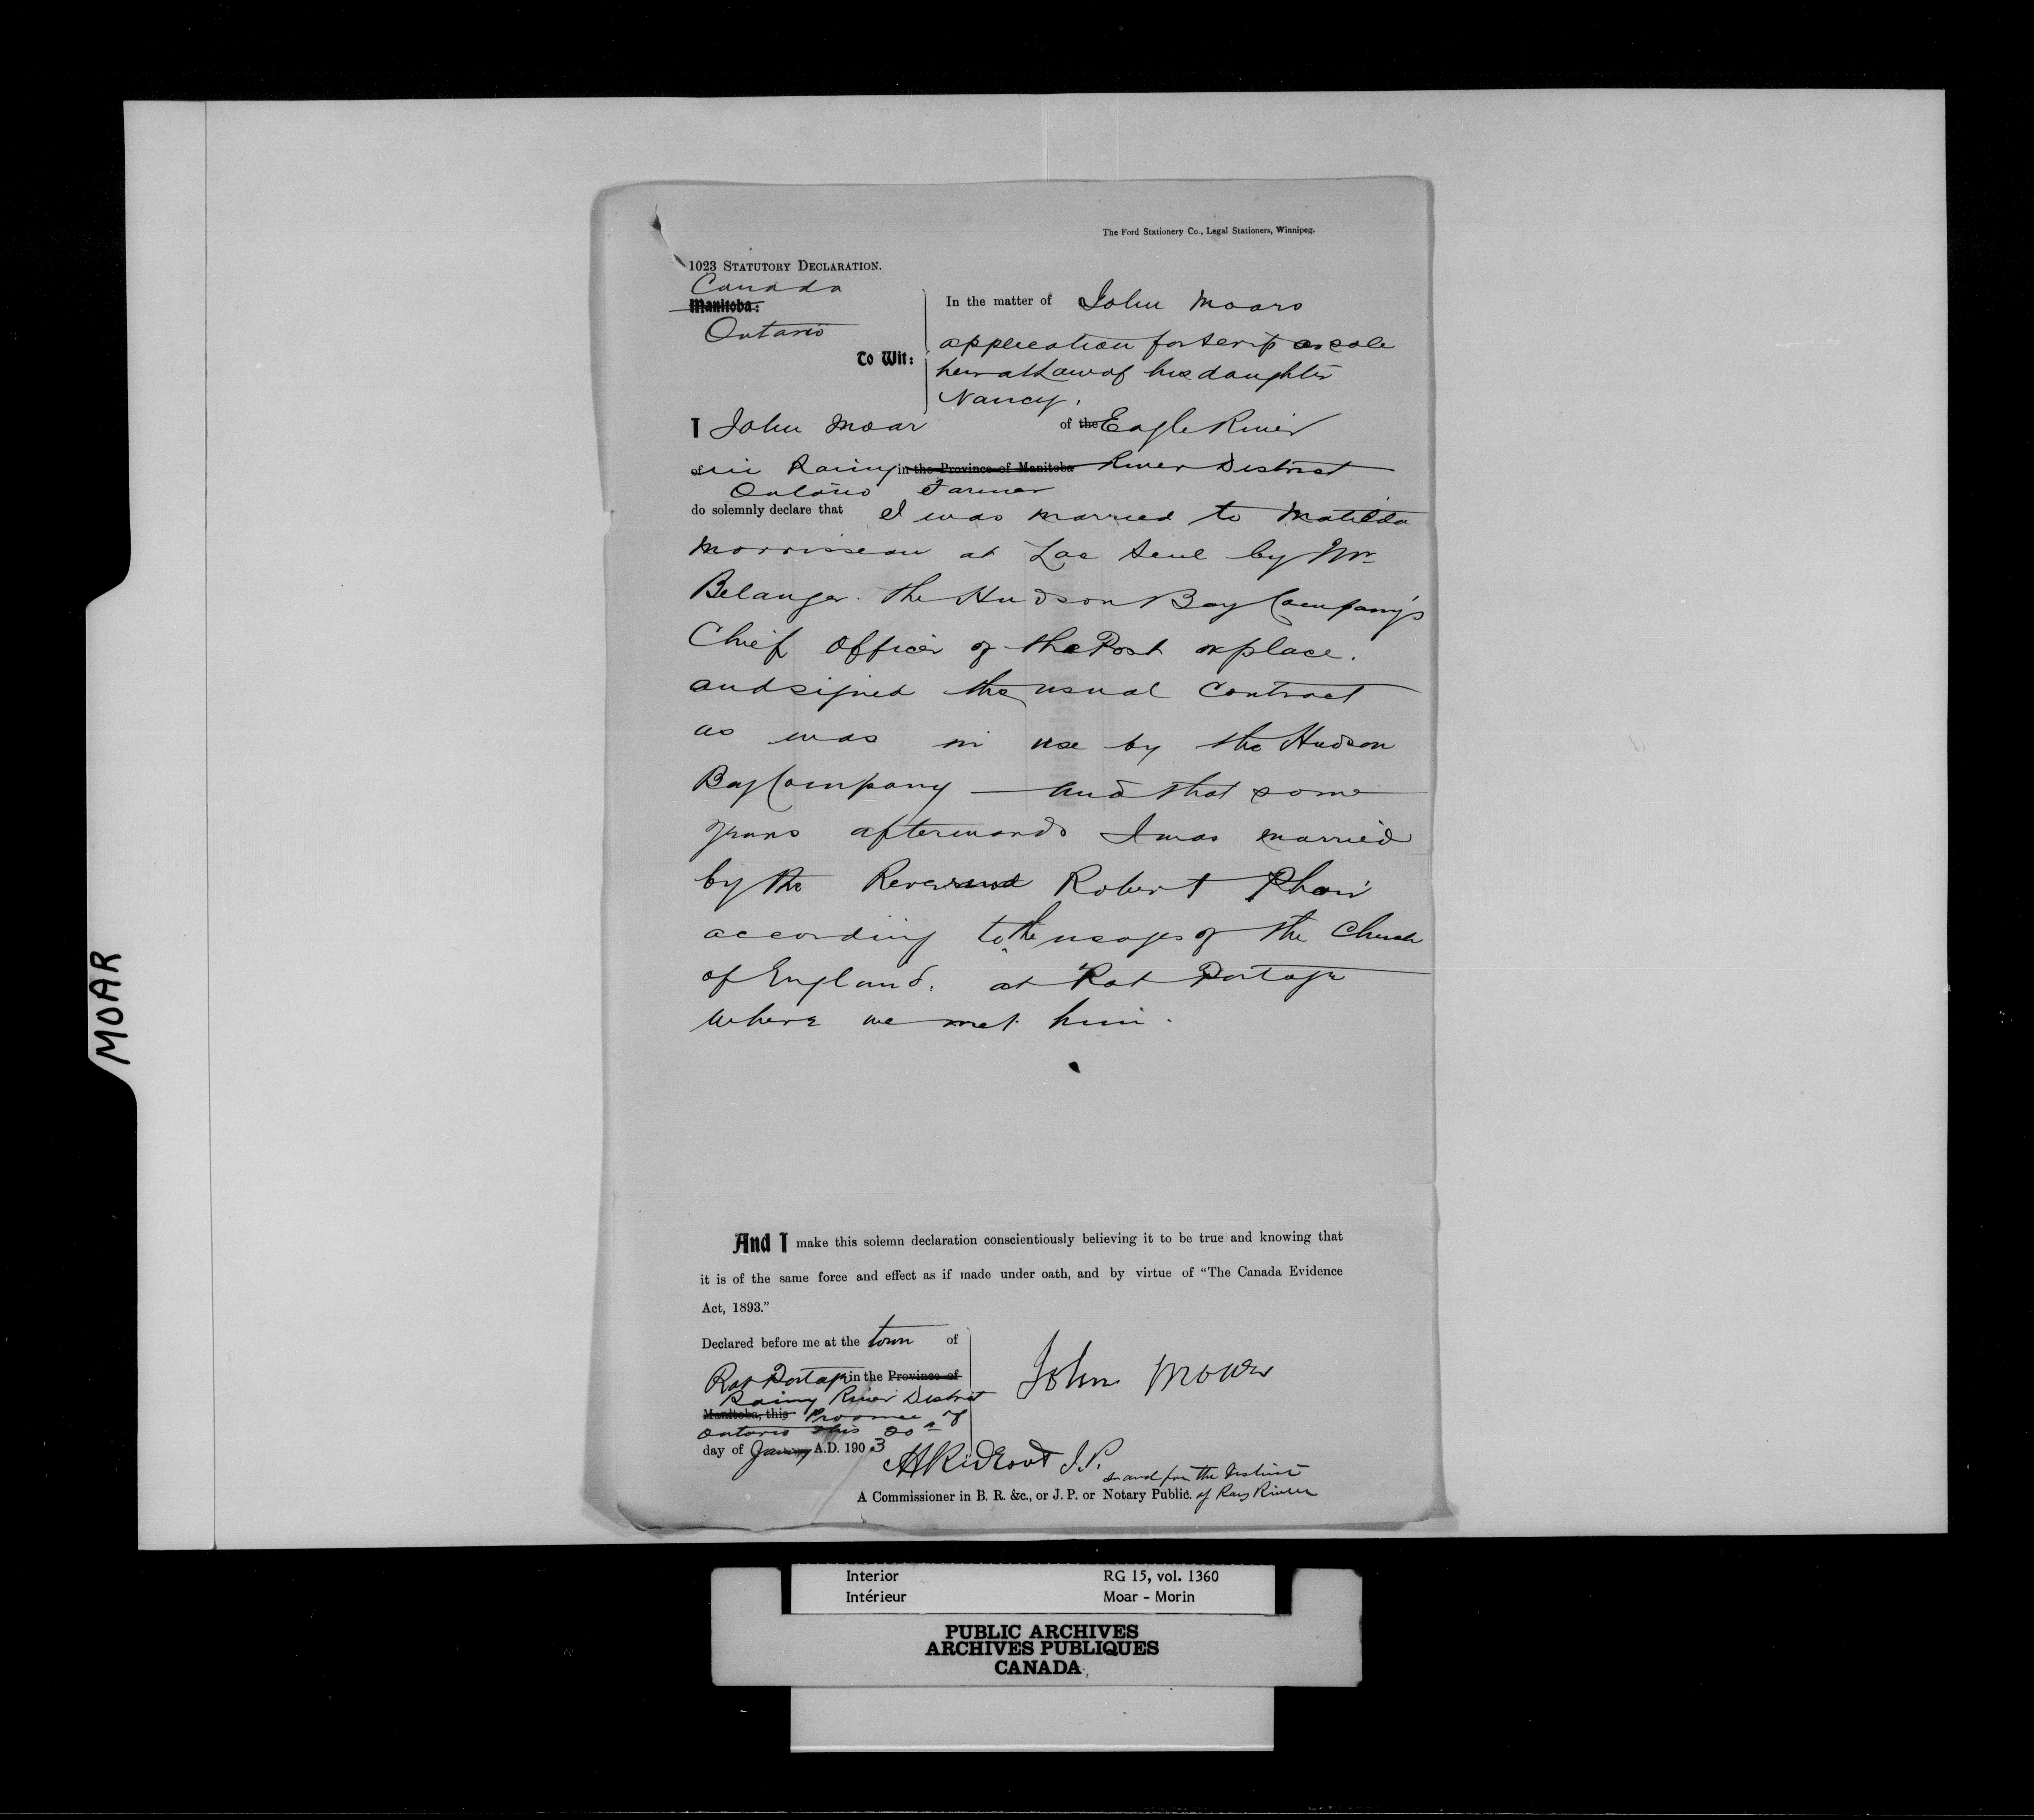 The Ford Stationery Co., Legal Stationers, Winnipeg.
1023 STATUTORY DECLARATION.
Canada
Manitoba:
Ontario
To Wit:
In the matter of John Moars
application for scrip as sole
heir at Law of his daughter
Nancy.
I John Moar of the Eagle River
of in Rainy in the Province of Manitoba River District
Ontario Farmer
do solemnly declare that I was married to Matilda
Morrisseau at Lac Seul by Mr
Belanger. The Hudson Bay Company's
Chief Officer of the Post or place.
and signed the usual Contract
as was in use by the Hudson
Bay Company — and that some
years afterwards I was married
by the Reverend Robert Phair
according to the usages of the Church
of England. at Rat Portage
where we met him.
And I make this solemn declaration conscientiously believing it to be true and knowing that
it is of the same force and effect as if made under oath, and by virtue of "The Canada Evidence
Act, 1893."
Declared before me at the town of
Rat Portage in the Province of
Rainy River District
Manitoba, this Province of
Ontario this 20th
day of January A.D. 1903
John Moar
J.P.
in and for the District
A Commissioner in B. R. &c., or J. P. or Notary Public. of Rainy River
MOAR
Interior RG 15, vol. 1360
Intérieur Moar - Morin
PUBLIC ARCHIVES
ARCHIVES PUBLIQUES
CANADA